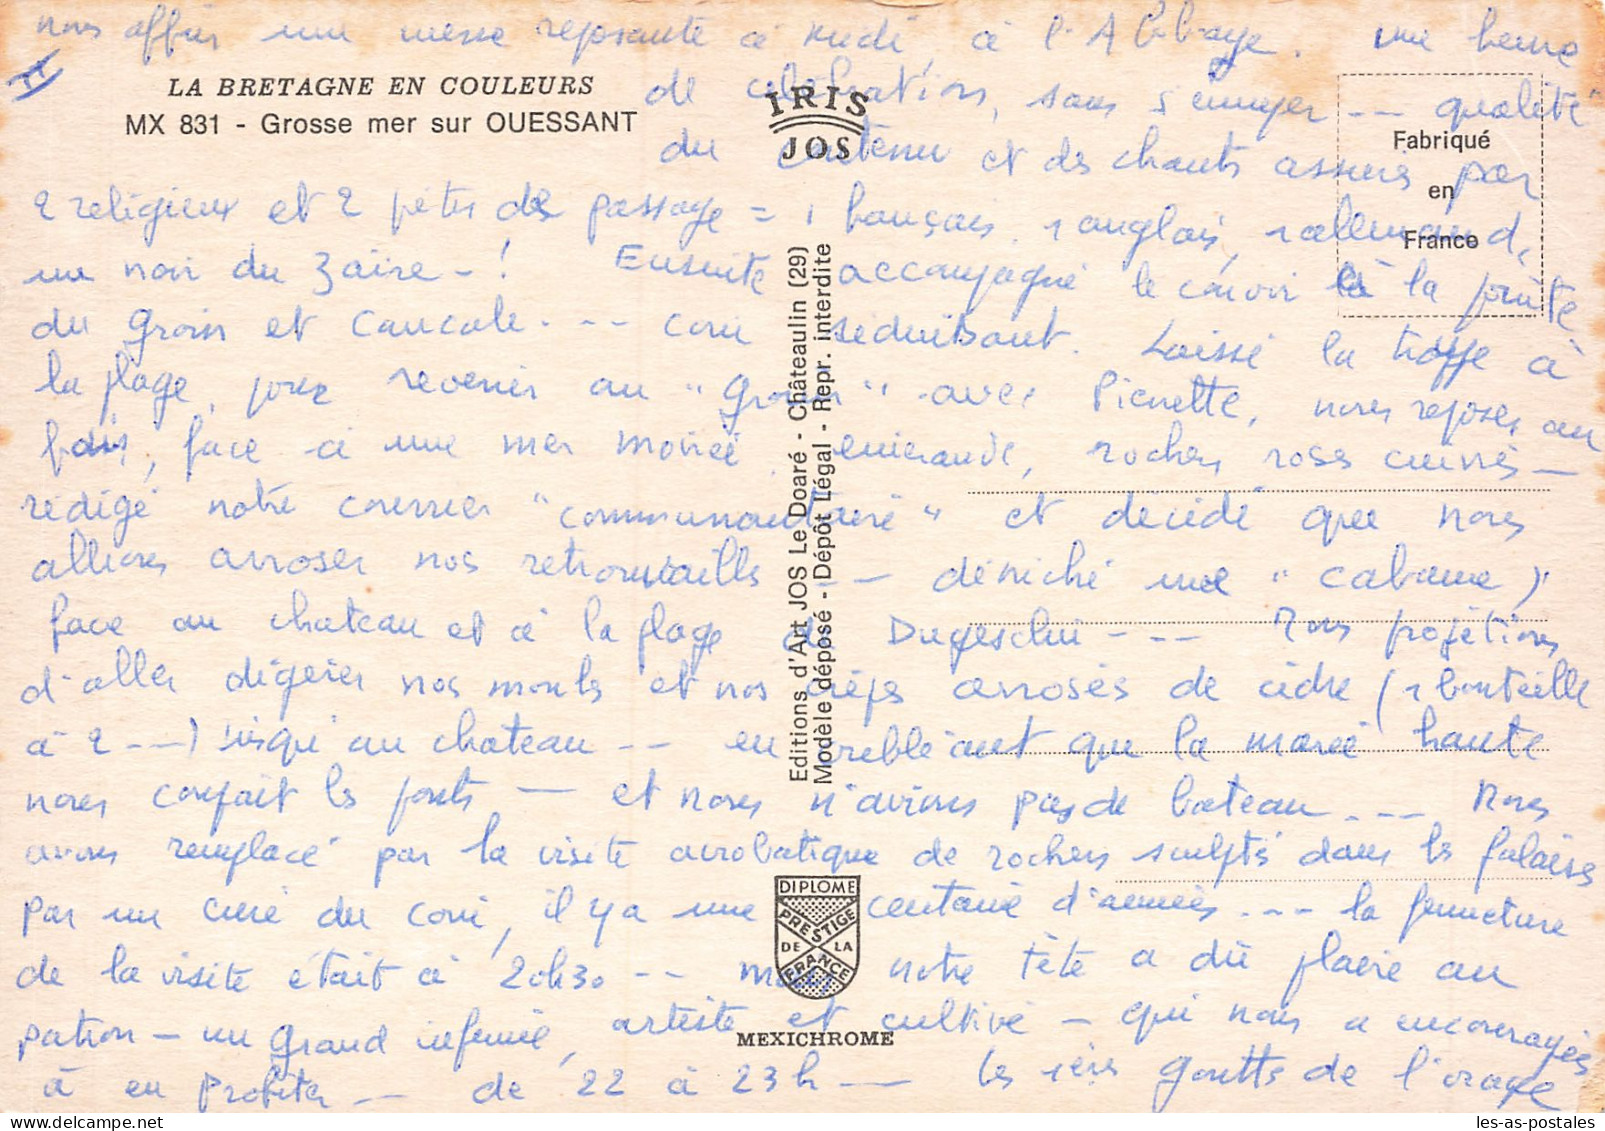 nous offrir une messe reposante à midi à l'Abbaye. une heure
II
LA BRETAGNE EN COULEURS
MX 831 - Grosse mer sur OUESSANT
de célébration, sans s'ennuyer -- qualité
IRIS
JOS
Fabriqué
en
France
du contenu et des chants assurés par
2 religieux et 2 pètes de passage = 1 français, 1 anglais, 1 allemand,
un noir du Zaïre - ! Ensuite accompagné le convoi à la pointe
du Groin et Cancale --- coin séduisant. Laissé la troupe à
la plage, pour revenir au "Groin" avec Pierrette, nous reposer au
bois, face à une mer moirée émeraude, rochers roses cuivrés -
rédigé notre courrier "communautaire" et décidé que nous
allions arroser nos retrouvailles -- déniché une "cabane"
face au chateau et à la plage de Dugesclin --- Nous projetions
d'aller digérer nos moules et nos crêpes arrosés de cidre (1 bouteille
à 2 ---) jusqu'au chateau -- en oubliant que la marée haute
nous coupait les ponts - et nous n'avions pas de bateau --- Nous
avons remplacé par la visite acrobatique de rochers sculptés dans les falaises
par un curé du coin, il y a une centaine d'années --- la fermeture
de la visite était à 20h30 -- mais notre tête a dû plaire au
patron - un grand infirme, artiste et cultivé - qui nous a encouragés
à en profiter -- de 22 à 23h -- les 1ères gouttes de l'orage
Editions d'Art JOS Le Doaré - Châteaulin (29)
Modèle déposé - Dépôt Légal - Repr. interdite
DIPLOME
PRESTIGE
DE LA
FRANCE
MEXICHROME
les-as-postales